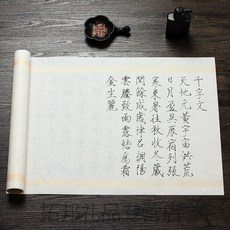 千字文
天地元黃宇宙洪荒
日月盈昃辰宿列張
寒來暑往秋收冬藏
閏餘成歲律呂調陽
雲騰致雨露結為霜
金生麗